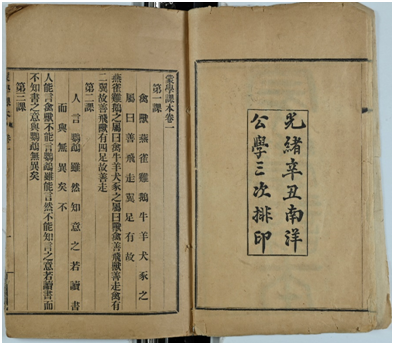 光緒辛丑南洋
公學三次排印
蒙學課本卷一
第一課
禽獸燕雀雞鵝牛羊犬豕之
屬曰善飛走翼足有故
燕雀雞鵝之屬曰禽牛羊犬豕之屬曰獸禽善飛獸善走禽有
二翼故善飛獸有四足故善走
第二課
人言鸚鵡雖然知意之若讀書
而與無異矣不
人能言禽獸不能言鸚鵡雖能言然不能知言之意若讀書而
不知書之意與鸚鵡無異矣
第三課